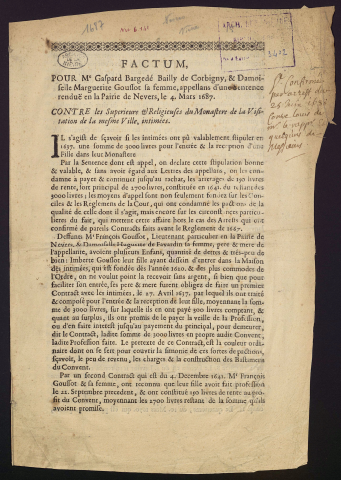 1687
FACTUM,
POUR Mᵉ Gaspard Bargedé Bailly de Corbigny, & Damoi-
selle Marguerite Goussot sa femme, appellans d'une Sentence
renduë en la Pairie de Nevers, le 4. Mars 1687.
CONTRE les Superieure & Religieuses du Monastere de la Visi-
tation de la mesme Ville, intimées.
IL s'agist de sçavoir si les intimées ont pû valablement stipuler en
1637. une somme de 3000 livres pour l'entrée & la reception d'une
Fille dans leur Monastere
Par la Sentence dont est appel, on declare cette stipulation bonne
& valable, & sans avoir égard aux Lettres des appellans, on les con-
damne à payer & continuer jusqu'au rachat, les arrerages de 150 livres
de rente, sort principal de 2700 livres, constituée en 1641. du restant des
3000 livres; les moyens d'appel sont non seulement fondez sur les Con-
ciles & les Reglemens de la Cour, qui ont condamné les pactions de la
qualité de celle dont il s'agit, mais encore sur des circonstances particu-
lieres du fait, qui mettent cette affaire hors le cas des Arrests qui ont
confirmé de pareils Contracts faits avant le Reglement de 1667.
Deffunt Mᵉ François Goussot, Lieutenant particulier en la Pairie de
Nevers, & Damoiselle Huguette de Favardin sa femme, pere & mere de
l'appellante, avoient plusieurs Enfans, quantité de dettes & très-peu de
bien: Imberte Goussot leur fille ayant dessein d'entrer dans la Maison
des intimées, qui est fondée dés l'année 1620. & des plus commodes de
l'Ordre, on ne voulut point la recevoir sans argent, si bien que pour
faciliter son entrée, ses pere & mere furent obligez de faire un premier
Contract avec les intimées, le 27. Avril 1637. par lequel ils ont traité
& composé pour l'entrée & la reception de leur fille, moyennant la som-
me de 3000 livres, sur laquelle ils en ont payé 300 livres comptant, &
quant au surplus, ils ont promis de le payer la veille de la Profession,
ou d'en faire interest jusqu'au payement du principal, pour demeurer,
dit le Contract, ladite somme de 3000 livres en propre audit Convent,
ladite Profession faite. Le pretexte de ce Contract, est la couleur ordi-
naire dont on se sert pour couvrir la simonie de ces sortes de pactions,
sçavoir, le peu de revenu, les charges & la construction des Bastimens
du Convent.
Par un second Contract qui est du 4. Decembre 1641. Mᵉ François
Goussot & sa femme, ont reconnu que leur fille avoit fait profession
le 22. Septembre precedent, & ont constitué 150 livres de rente au pro-
fit du Convent, moyennant les 2700 livres restans de la somme qu'ils
avoient promise.